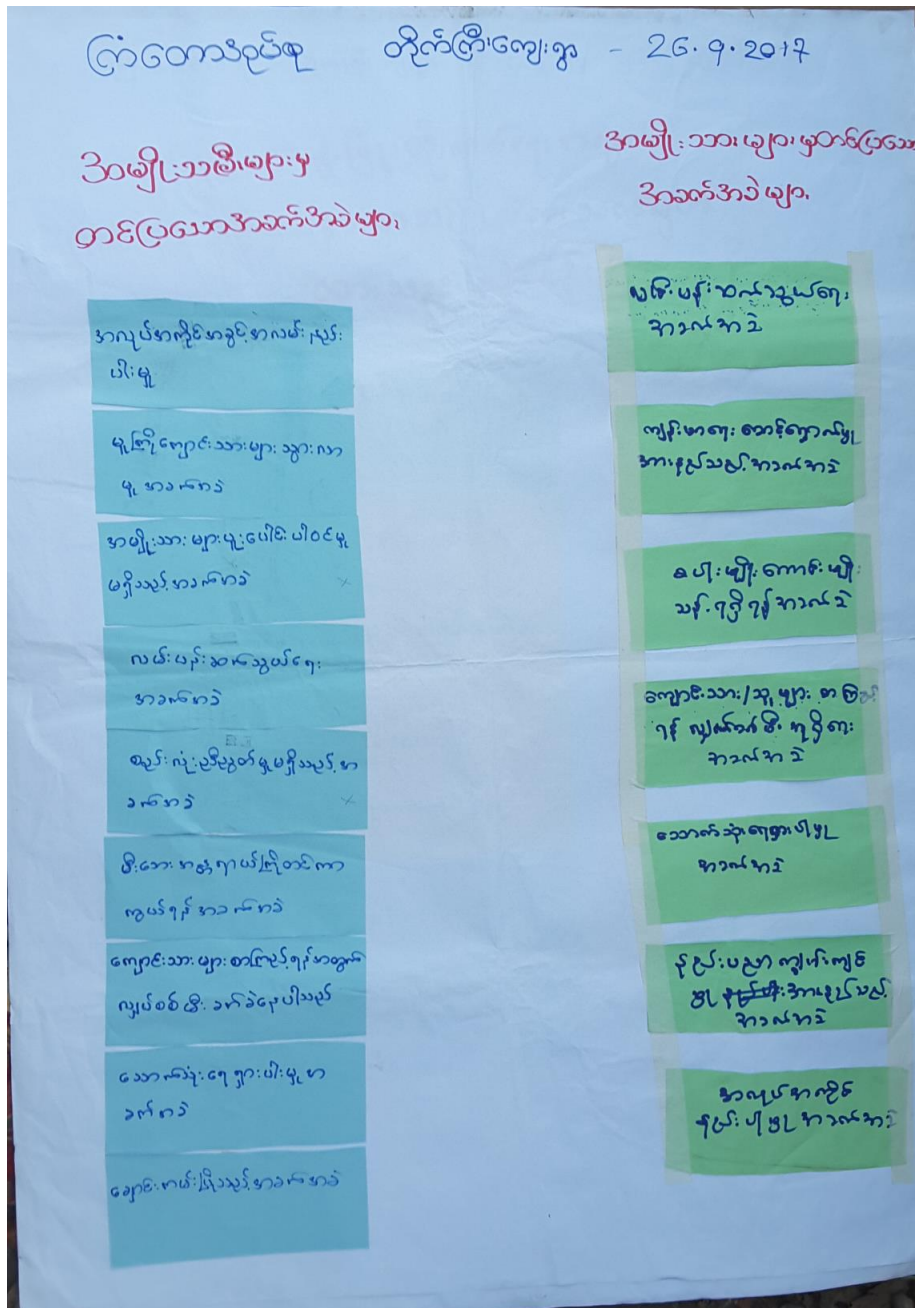 ကြံတောအုပ်စု တိုက်ကြီးကျေးရွာ - 26.9.2017
အမျိုးသမီးများမှ
တင်ပြသောအခက်အခဲများ
အလုပ်အကိုင်အခွင့်အလမ်းနည်း
ပါးမှု
မူကြိုကျောင်းသားများ သွားလာ
မှု အခက်အခဲ
အမျိုးသားများပူးပေါင်းပါဝင်မှု
မရှိသည့်အခက်အခဲ
လမ်းပန်းဆက်သွယ်ရေး
အခက်အခဲ
စည်းလုံးညီညွတ်မှုမရှိသည့်အ
ခက်အခဲ
မီးဘေးအန္တရာယ်ကြိုတင်ကာ
ကွယ်ရန် အခက်အခဲ
ကျောင်းသားများစာကြည့်ရန်အတွက်
လျှပ်စစ်မီး ခက်ခဲနေပါသည်
သောက်သုံးရေရှားပါးမှုအ
ခက်အခဲ
ချောင်းကမ်းပြိုသည့်အခက်အခဲ
အမျိုးသားများမှတင်ပြသော
အခက်အခဲများ
လမ်းပန်းဆက်သွယ်ရေး
အခက်အခဲ
ကျန်းမာရေး စောင့်ရှောက်မှု
အားနည်းသည့်အခက်အခဲ
စပါးမျိုးကောင်းမျိုး
သန့်ရရှိရန်အခက်ခဲ
ကျောင်းသား/သူများ စာကြည့်
ရန် လျှပ်စစ်မီး ရရှိရေး
အခက်အခဲ
သောက်သုံးရေရှားပါးမှု
အခက်အခဲ
နည်းပညာကျွမ်းကျင်
မှု အားနည်းသည့်
အခက်အခဲ
အလုပ်အကိုင်
နည်းပါးမှု အခက်အခဲ